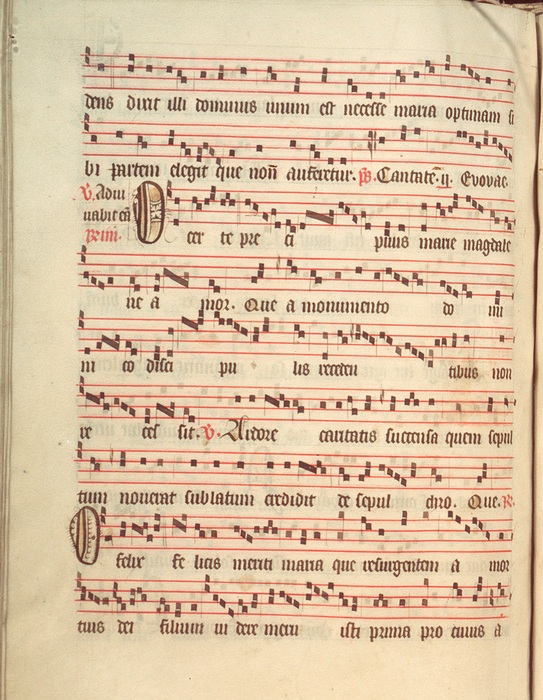 dens dixit illi dominus unum est necesse maria optimam si
bi partem elegit que non auferetur. ps. Cantate. ij. Evovae.
V. Adiu
uabit eā
Primi.
O cer te pre ci puus marie magdale
ne a mor. Que a monumento do mi
ni co disci pu lis receden tibus non
re ces sit. V. Ardore caritatis succensa quem sepul
tum noverat sublatum credidit de sepul chro. Que. R.
O felix fe licis meriti maria que resurgentem a mor
tuis dei filium vi dere meru isti prima pro cuius a